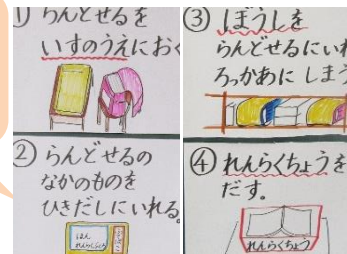 ① らんどせるを
いすのうえにおく
② らんどせるの
なかのものを
ひきだしにいれる。
ほん
れんらくちょう
③ ぼうしを
らんどせるにいれ
ろっかあにしまう
④ れんらくちょうを
だす。
れんらくちょう